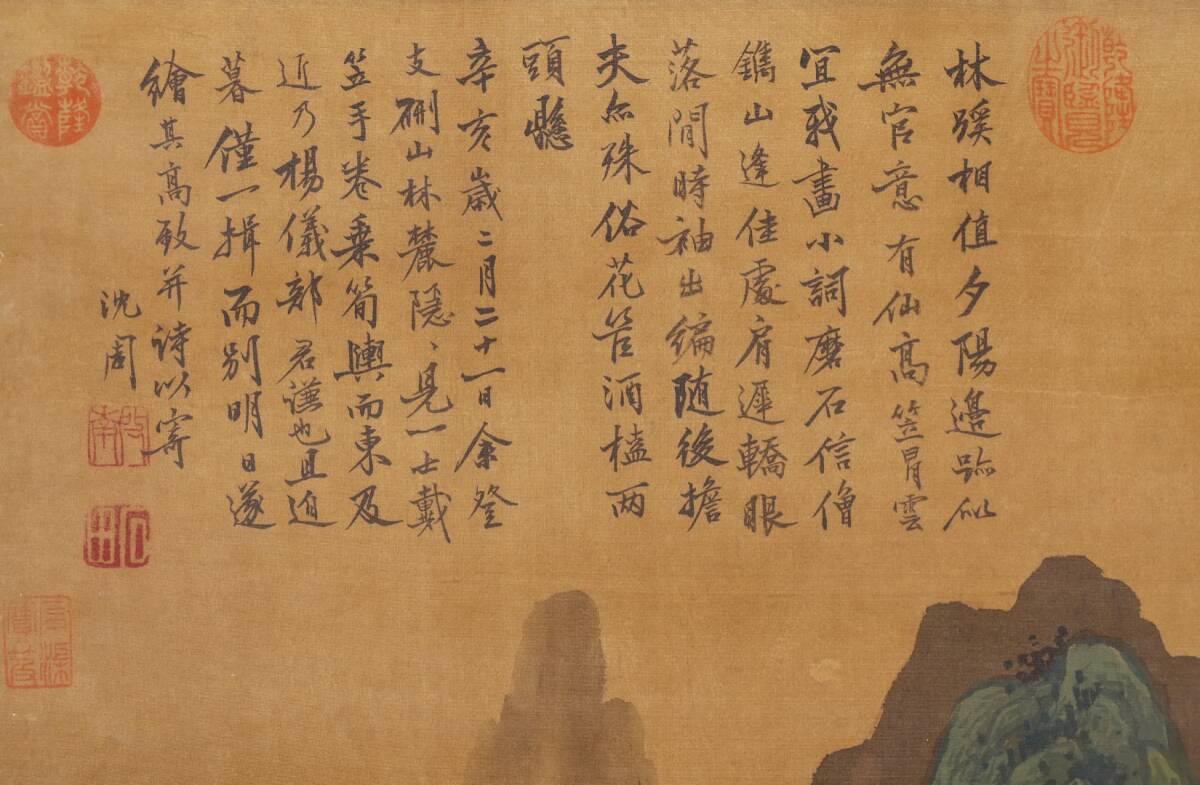 林蹊相值夕陽邊跡似
無官意有仙高笠冐雲
宜我畫小詞磨石信僧
鐫山逢佳處肩遲轎眼
落閒時袖出編随後擔
夫無殊俗花筥酒榼两
頭懸
辛亥歲二月二十一日余登
支硎山林麓隱、見一士戴
笠手卷乗筍輿而東及
近乃楊儀部君謙也且迫
暮僅一揖而别明日遂
繪其高致并詩以寄
沈周
乾隆御覽之寶
乾隆鑑賞
啟南